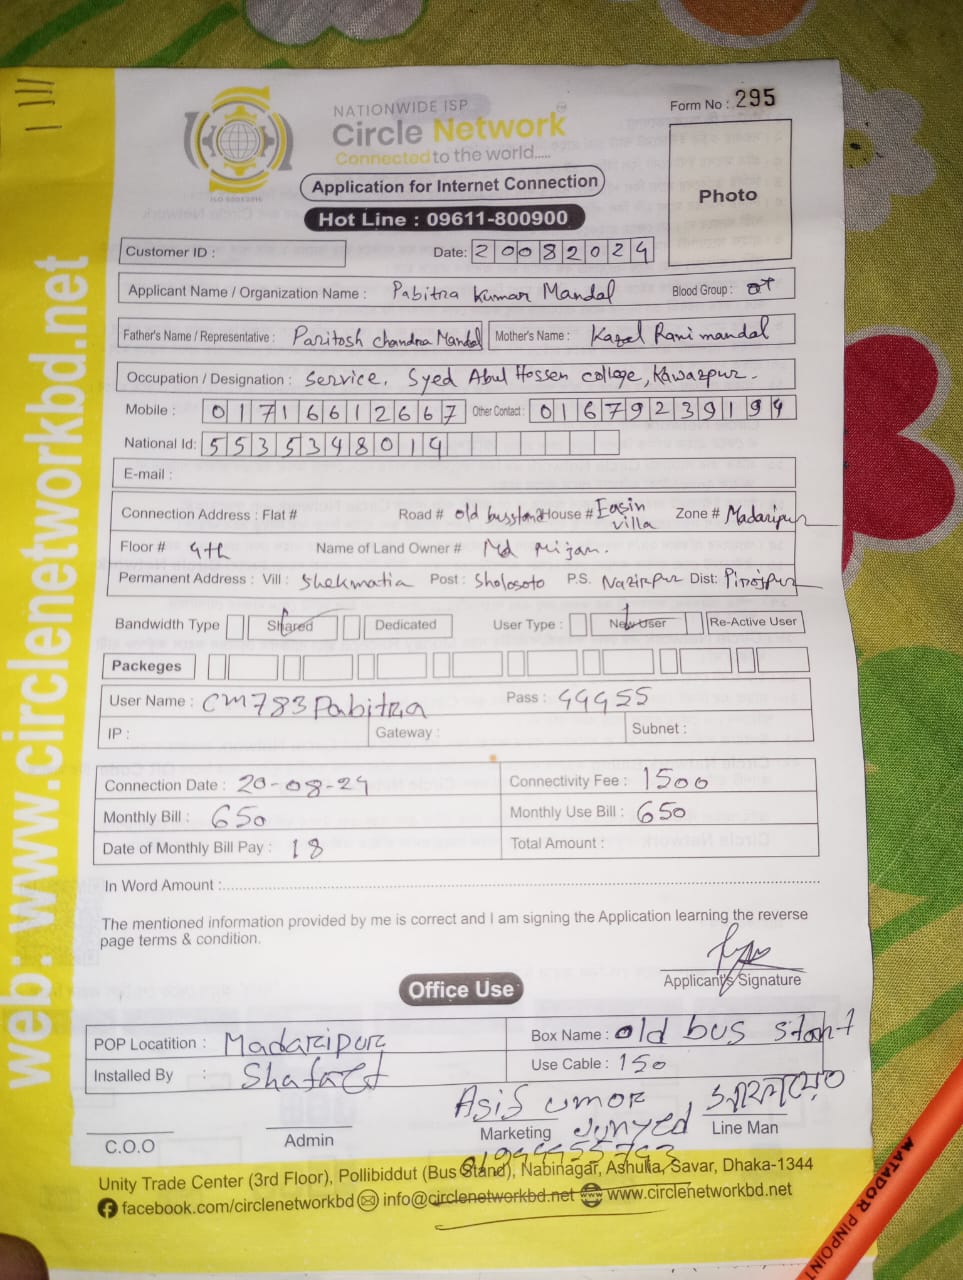 NATIONWIDE ISP
Circle Network
Connected to the world.....
ISO 9001:2015
Form No : 295
Photo
Application for Internet Connection
Hot Line : 09611-800900
Customer ID :
Date: 20082024
Applicant Name / Organization Name : Pabitra Kumar Mandal Blood Group : O+
Father's Name / Representative : Paritosh chandra Mandal Mother's Name : Kazal Rani mandal
Occupation / Designation : Service, Syed Abul Hossen college, Kawazpur.
Mobile : 01716612667 Other Contact : 01679239194
National Id: 5535348014
E-mail :
Connection Address : Flat # Road # old busstand House # Easin villa Zone # Madaripur
Floor # 4th Name of Land Owner # Md Mijan.
Permanent Address : Vill : Shekmatia Post : Sholosoto P.S. Nazirpur Dist: Pirojpur
Bandwidth Type Shared Dedicated User Type : New User Re-Active User
Packeges
User Name : CM783Pabitra Pass : 44455
IP : Gateway : Subnet :
Connection Date : 20-08-24 Connectivity Fee : 1500
Monthly Bill : 650 Monthly Use Bill : 650
Date of Monthly Bill Pay : 18 Total Amount :
In Word Amount :
The mentioned information provided by me is correct and I am signing the Application learning the reverse
page terms & condition.
Applicant's Signature
Office Use
POP Locatition : Madaripur Box Name : old bus stant
Installed By : Use Cable : 150
Asif umor
Junyed
C.O.O Admin Marketing Line Man
Unity Trade Center (3rd Floor), Pollibiddut (Bus Stand), Nabinagar, Ashulia, Savar, Dhaka-1344
facebook.com/circlenetworkbd info@circlenetworkbd.net www.circlenetworkbd.net
web: www.circlenetworkbd.net
MATADOR PINPOINT